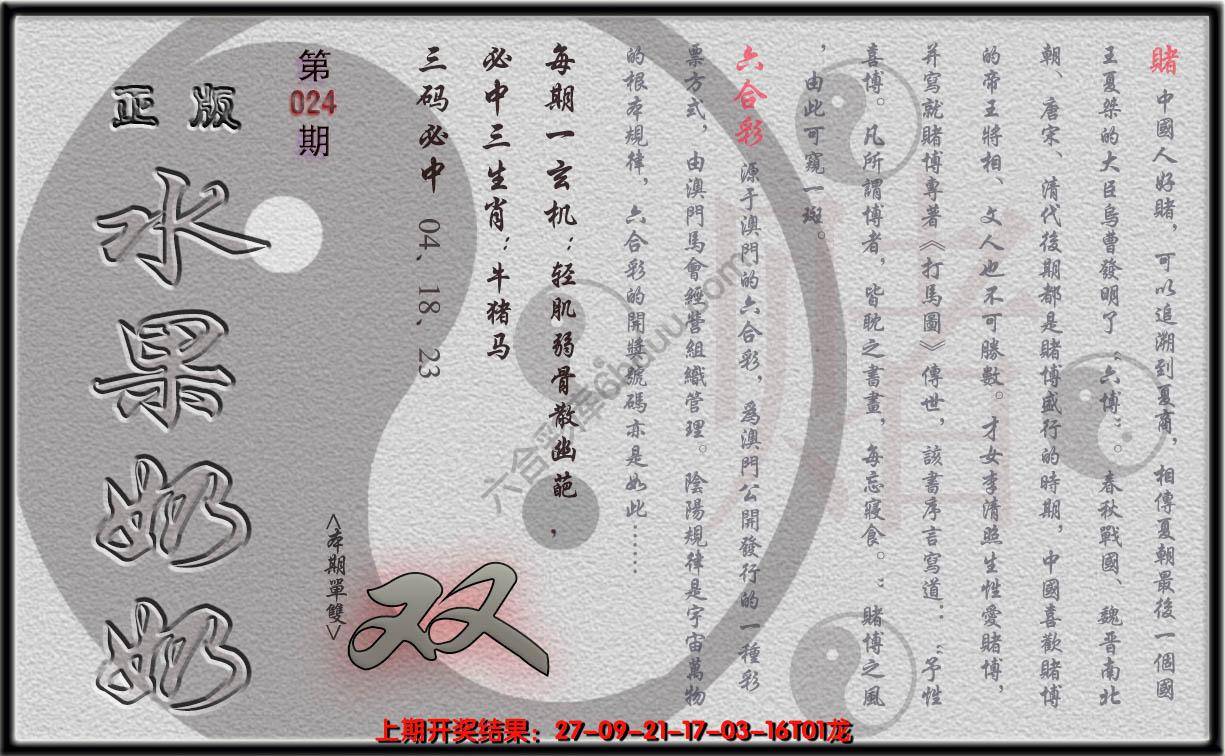 賭 中國人好賭，可以追溯到夏商，相傳夏朝最後一個國
王夏桀的大臣烏曹發明了“六博”。春秋戰國、魏晋南北
朝、唐宋、清代後期都是賭博盛行的時期，中國喜歡賭博
的帝王將相、文人也不可勝數。才女李清照生性愛賭博，
并寫就賭博專著《打馬圖》傳世，該書序言寫道：“予性
喜博。凡所謂博者，皆耽之書畫，每忘寢食。”賭博之風
，由此可窺一斑。
六合彩 源于澳門的六合彩，爲澳門公開發行的一種彩
票方式，由澳門馬會經營組織管理。陰陽規律是宇宙萬物
的根本規律，六合彩的開獎號碼亦是如此……
每期一玄机：轻肌弱骨散幽葩，
必中三生肖：牛猪马
三码必中 04、18、23
第
024
期
<本期單雙>
双
正版
水果奶奶
赌
上期开奖结果：27-09-21-17-03-16T01龙